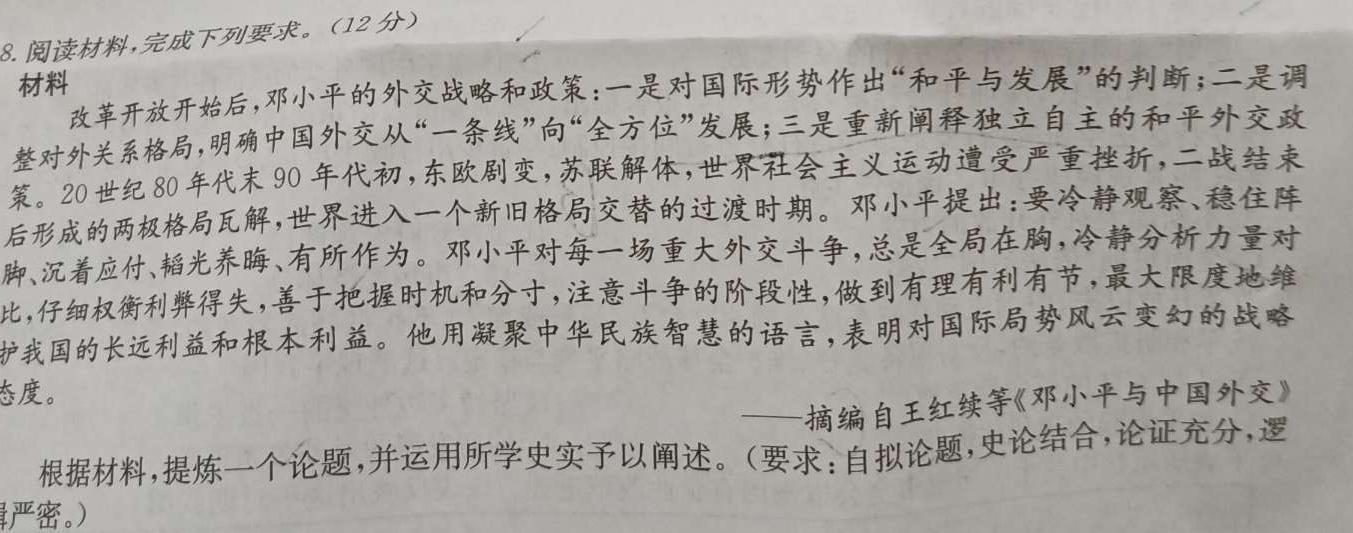 8. 阅读材料,完成下列要求。(12分)
材料
改革开放开始后,邓小平的外交战略和政策:一是对国际形势作出“和平与发展”的判断;二是调
整对外关系格局,明确中国外交从“一条线”向“全方位”发展;三是重新阐释独立自主的和平外交政
策。20世纪80年代末90年代初,东欧剧变,苏联解体,世界社会主义运动遭受严重挫折,二战结束
后形成的两极格局瓦解,世界进入一个新旧格局交替的过渡时期。邓小平提出:要冷静观察、稳住阵
脚、沉着应付、韬光养晦、有所作为。邓小平对每一场重大外交斗争,总是全局在胸,冷静分析力量对
比,仔细权衡利弊得失,善于把握时机和分寸,注意斗争的阶段性,做到有理有利有节,最大限度地维
护我国的长远利益和根本利益。他用凝聚中华民族智慧的语言,表明对国际局势风云变幻的战略
态度。
——摘编自王红续等《邓小平与中国外交》
根据材料,提炼一个论题,并运用所学史实予以阐述。(要求:自拟论题,史论结合,论证充分,逻
辑严密。)